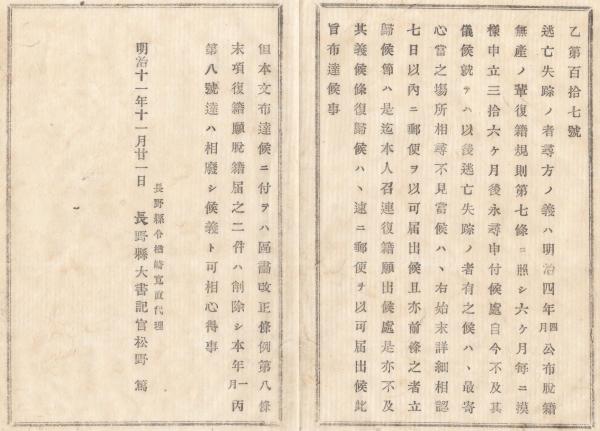 乙第百拾七號
逃亡失踪ノ者尋方ノ義ハ明治四年四月公布脫籍
無產ノ輩復籍規則第七條ニ照シ六ヶ月每ニ模
樣申立三拾六ヶ月後永尋申付候處自今不及其
儀候就テハ以後逃亡失踪ノ者有之候ハヽ最寄
心當之場所相尋不見當候ハヽ右始末詳細相認
七日以內ニ郵便ヲ以可届出候且亦前條之者立
歸候節ハ是迄本人召連復籍願出候處是亦不及
其義候條復歸候ハヽ速ニ郵便ヲ以可届出候此
旨布達候事
但本文布達候ニ付テハ區畫改正條例第八條
末項復籍願脫籍届之二件ハ削除シ本年一月丙
第八號達ハ相廢シ候義ト可相心得事
長野縣令楢崎寬直代理
明治十一年十一月廿一日 長野縣大書記官松野篤